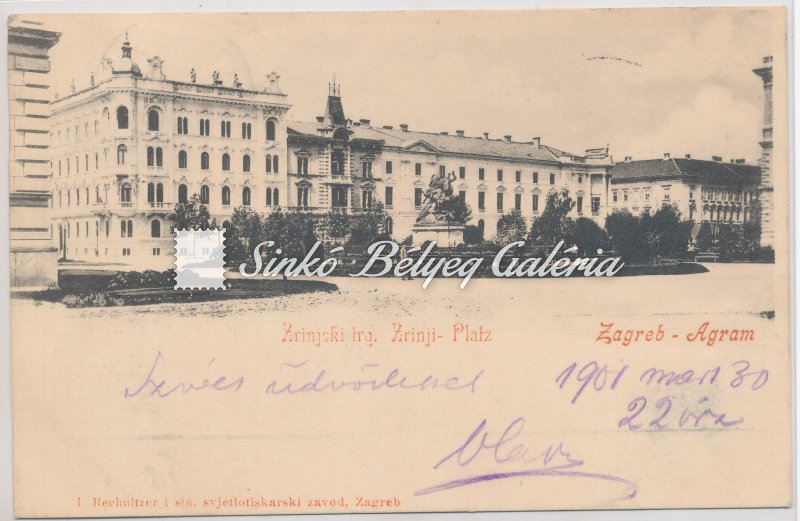 Sinkó Bélyeg Galéria
Zrinjski trg. Zrinji-Platz
Zagreb - Agram
Szíves üdvözlettel
1901 mart 30
22 óra
I Rechnitzer i sin. svjetlotiskarski zavod, Zagreb